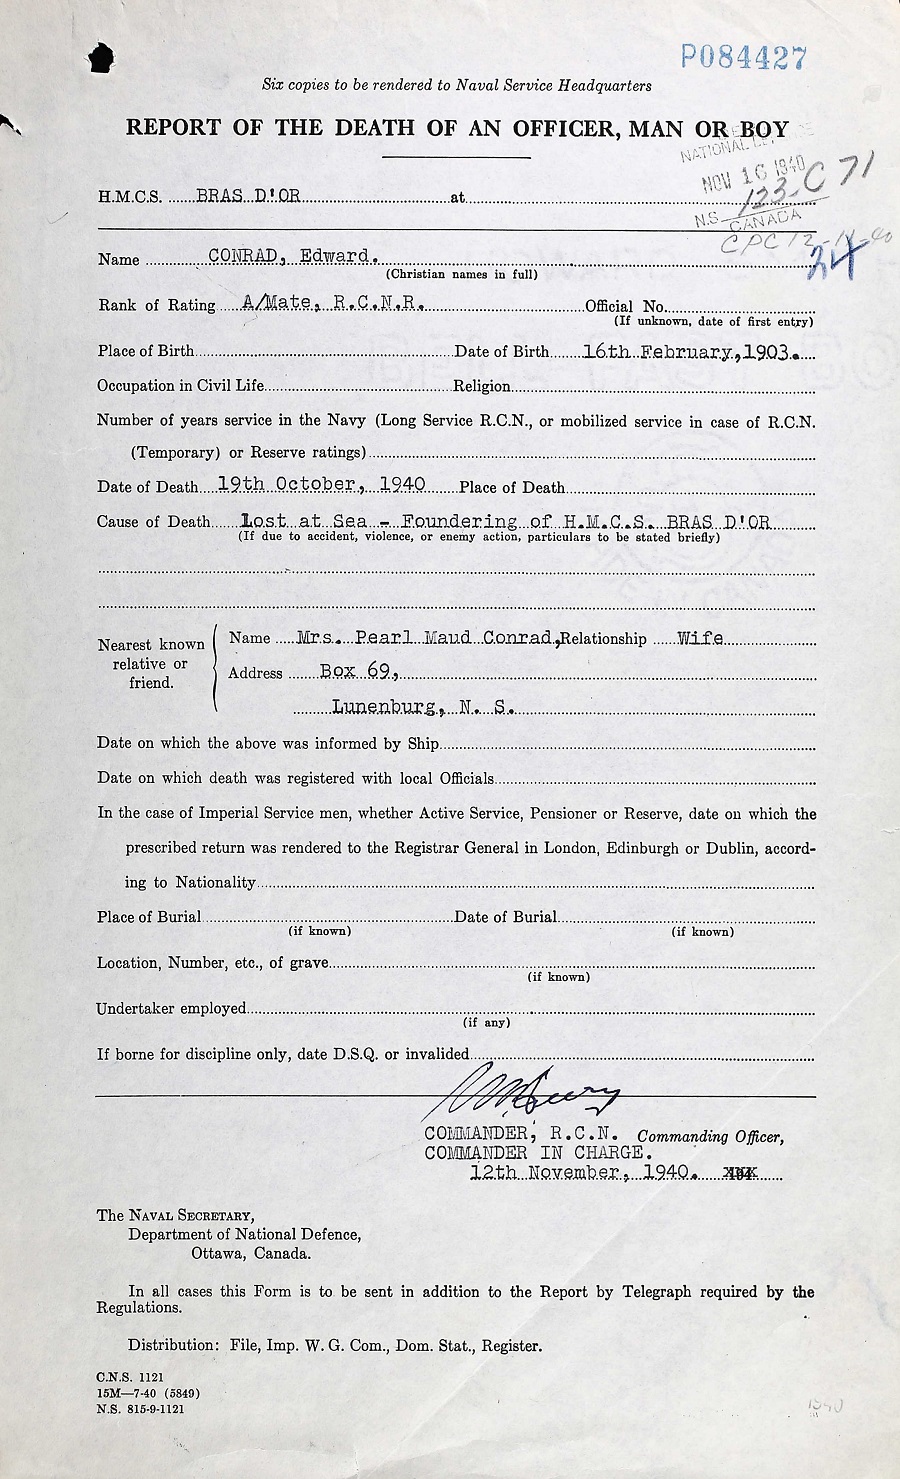 P084427
Six copies to be rendered to Naval Service Headquarters
REPORT OF THE DEATH OF AN OFFICER, MAN OR BOY
NATIONAL
NOV 16 1940
123-C 71
N.S.
CANADA
H.M.C.S. BRAS D'OR at
CPC 12-11-40
24
Name CONRAD, Edward.
(Christian names in full)
Rank of Rating A/Mate, R.C.N.R. Official No.
(If unknown, date of first entry)
Place of Birth Date of Birth 16th February, 1903.
Occupation in Civil Life Religion
Number of years service in the Navy (Long Service R.C.N., or mobilized service in case of R.C.N.
(Temporary) or Reserve ratings)
Date of Death 19th October, 1940 Place of Death
Cause of Death Lost at Sea - Foundering of H.M.C.S. BRAS D'OR
(If due to accident, violence, or enemy action, particulars to be stated briefly)
Nearest known relative or friend.
Name Mrs. Pearl Maud Conrad, Relationship Wife
Address Box 69,
Lunenburg, N. S.
Date on which the above was informed by Ship
Date on which death was registered with local Officials
In the case of Imperial Service men, whether Active Service, Pensioner or Reserve, date on which the
prescribed return was rendered to the Registrar General in London, Edinburgh or Dublin, accord-
ing to Nationality
Place of Burial Date of Burial
(if known) (if known)
Location, Number, etc., of grave
(if known)
Undertaker employed
(if any)
If borne for discipline only, date D.S.Q. or invalided
COMMANDER, R.C.N. Commanding Officer,
COMMANDER IN CHARGE.
12th November, 1940.
The NAVAL SECRETARY,
Department of National Defence,
Ottawa, Canada.
In all cases this Form is to be sent in addition to the Report by Telegraph required by the
Regulations.
Distribution: File, Imp. W. G. Com., Dom. Stat., Register.
C.N.S. 1121
15M—7-40 (5849)
N.S. 815-9-1121
1940